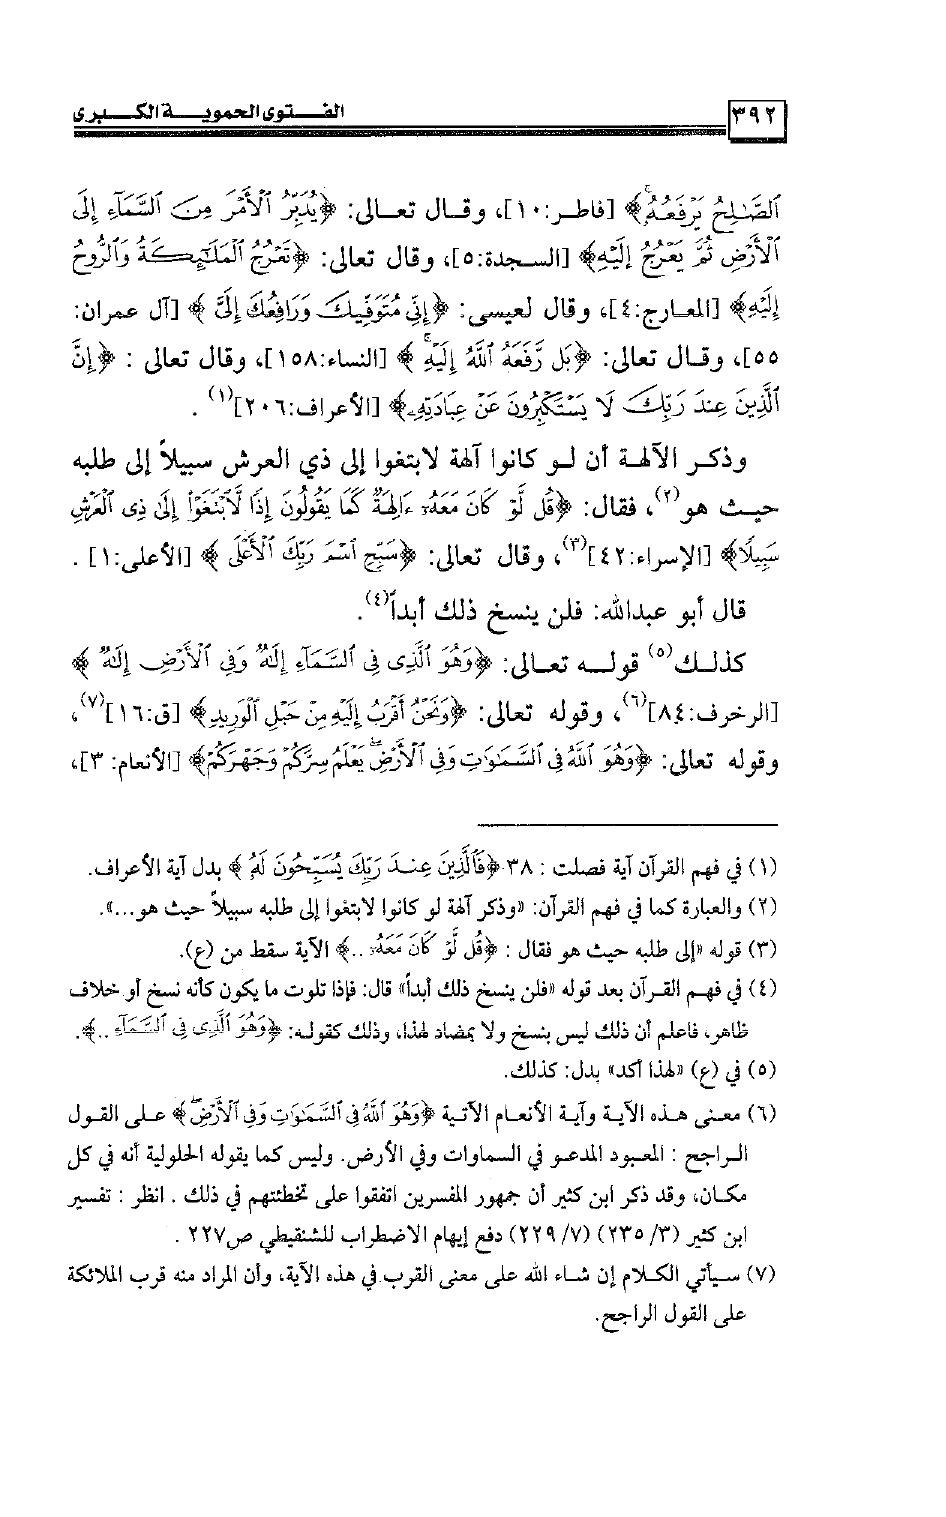 ٣٩٢ الفتوى الحموية الكبرى
ٱلصَّٰلِحُ يَرْفَعُهُۥ﴾ [فاطر:١٠]، وقال تعالى: ﴿يُدَبِّرُ ٱلْأَمْرَ مِنَ ٱلسَّمَآءِ إِلَى
ٱلْأَرْضِ ثُمَّ يَعْرُجُ إِلَيْهِ﴾ [السجدة:٥]، وقال تعالى: ﴿تَعْرُجُ ٱلْمَلَٰٓئِكَةُ وَٱلرُّوحُ
إِلَيْهِ﴾ [المعارج:٤]، وقال لعيسى: ﴿إِنِّى مُتَوَفِّيكَ وَرَافِعُكَ إِلَىَّ﴾ [آل عمران:
٥٥]، وقال تعالى: ﴿بَل رَّفَعَهُ ٱللَّهُ إِلَيْهِ﴾ [النساء:١٥٨]، وقال تعالى : ﴿إِنَّ
ٱلَّذِينَ عِندَ رَبِّكَ لَا يَسْتَكْبِرُونَ عَنْ عِبَادَتِهِۦ﴾ [الأعراف:٢٠٦](١) .
وذكر الآلهة أن لو كانوا آلهة لابتغوا إلى ذي العرش سبيلاً إلى طلبه
حيث هو(٢)، فقال: ﴿قُل لَّوْ كَانَ مَعَهُۥٓ ءَالِهَةٌ كَمَا يَقُولُونَ إِذًا لَّٱبْتَغَوْا۟ إِلَىٰ ذِى ٱلْعَرْشِ
سَبِيلًا﴾ [الإسراء:٤٢](٣)، وقال تعالى: ﴿سَبِّحِ ٱسْمَ رَبِّكَ ٱلْأَعْلَى﴾ [الأعلى:١] .
قال أبو عبدالله: فلن ينسخ ذلك أبداً(٤).
كذلك(٥) قوله تعالى: ﴿وَهُوَ ٱلَّذِى فِى ٱلسَّمَآءِ إِلَٰهٌ وَفِى ٱلْأَرْضِ إِلَٰهٌ﴾
[الزخرف:٨٤](٦)، وقوله تعالى: ﴿وَنَحْنُ أَقْرَبُ إِلَيْهِ مِنْ حَبْلِ ٱلْوَرِيدِ﴾ [ق:١٦](٧)،
وقوله تعالى: ﴿وَهُوَ ٱللَّهُ فِى ٱلسَّمَٰوَٰتِ وَفِى ٱلْأَرْضِ يَعْلَمُ سِرَّكُمْ وَجَهْرَكُمْ﴾ [الأنعام: ٣]،
(١) في فهم القرآن آية فصلت : ٣٨ ﴿فَٱلَّذِينَ عِندَ رَبِّكَ يُسَبِّحُونَ لَهُۥ﴾ بدل آية الأعراف.
(٢) والعبارة كما في فهم القرآن: «وذكر آلهة لو كانوا لابتغوا إلى طلبه سبيلاً حيث هو...».
(٣) قوله «إلى طلبه حيث هو فقال : ﴿قُل لَّوْ كَانَ مَعَهُۥٓ ..﴾ الآية سقط من (ع).
(٤) في فهم القرآن بعد قوله «فلن ينسخ ذلك أبداً» قال: فإذا تلوت ما يكون كأنه نسخ أو خلاف
ظاهر، فاعلم أن ذلك ليس بنسخ ولا بمضاد لهذا، وذلك كقوله: ﴿وَهُوَ ٱلَّذِى فِى ٱلسَّمَآءِ ..﴾.
(٥) في (ع) «لهذا أكد» بدل: كذلك.
(٦) معنى هذه الآية وآية الأنعام الآتية ﴿وَهُوَ ٱللَّهُ فِى ٱلسَّمَٰوَٰتِ وَفِى ٱلْأَرْضِ﴾ على القول
الراجح : المعبود المدعو في السماوات وفي الأرض. وليس كما يقوله الحلولية أنه في كل
مكان، وقد ذكر ابن كثير أن جمهور المفسرين اتفقوا على تخطئتهم في ذلك . انظر : تفسير
ابن كثير (٣/ ٢٣٥) (٧/ ٢٢٩) دفع إيهام الاضطراب للشنقيطي ص٢٢٧ .
(٧) سيأتي الكلام إن شاء الله على معنى القرب في هذه الآية، وأن المراد منه قرب الملائكة
على القول الراجح.